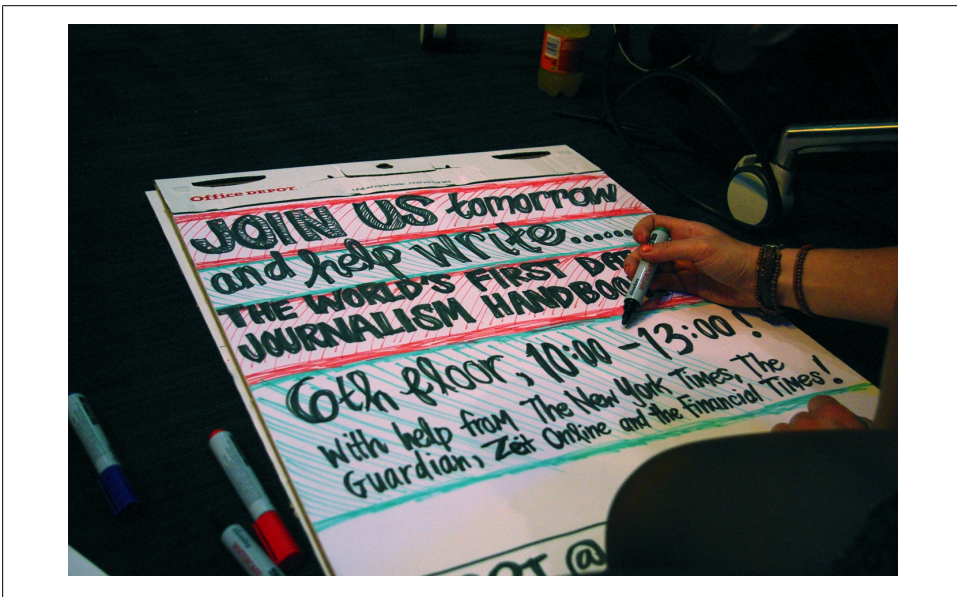 Office DEPOT
JOIN US tomorrow
and help write......
THE WORLD'S FIRST DATA
JOURNALISM HANDBOO
6th floor, 10:00 – 13:00!
with help from The New York Times, The
Guardian, Zeit Online and the Financial Times!